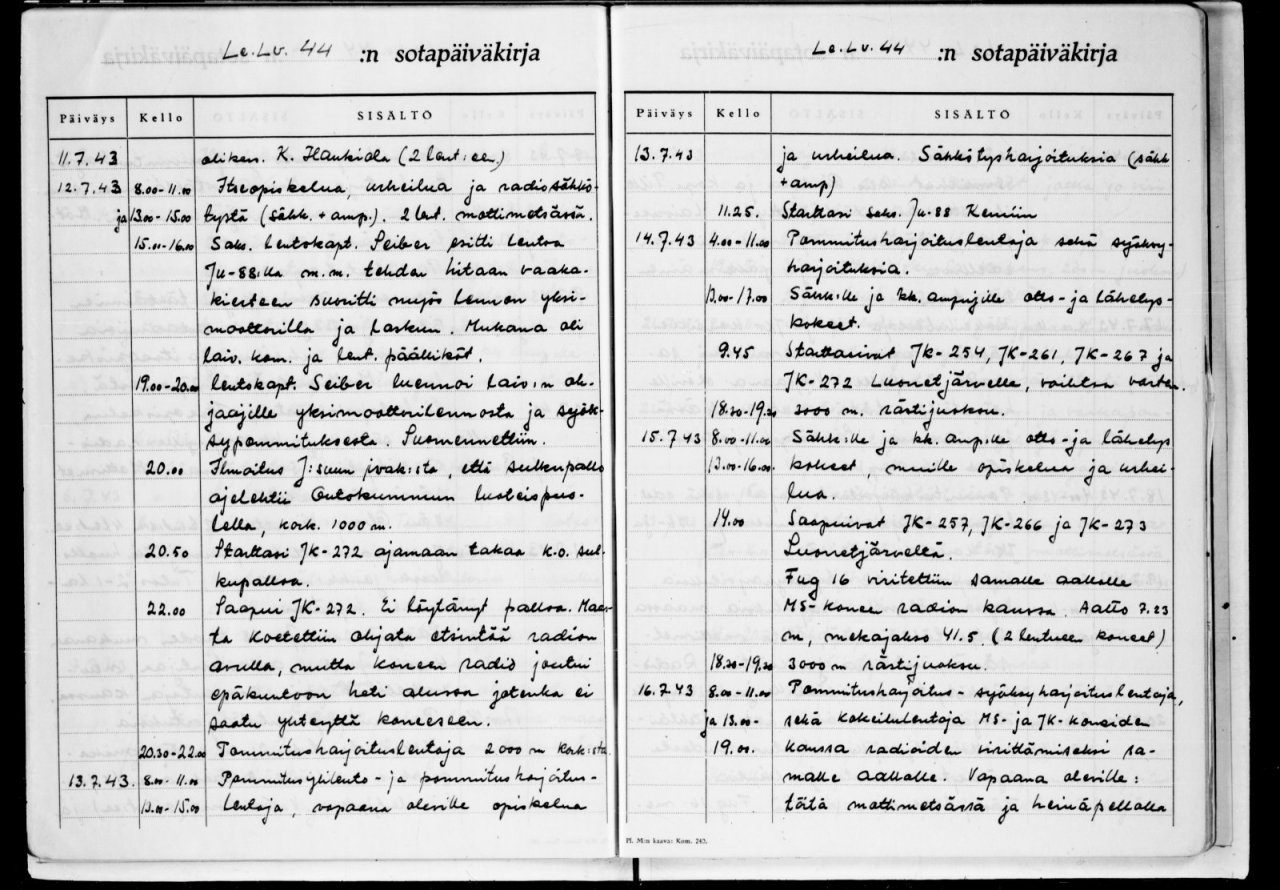 Le.Lv. 44 :n sotapäiväkirja
Päiväys Kello SISÄLTÖ
11.7.43 oliken. K. Haukiola (2 lent:een.)
12.7.43 8.00-11.00 Itseopiskelua, urheilua ja radiosähkö-
ja 13.00-15.00 tystä (sähk. + amp.). 2 lent. mottimetsässä.
15.00-16.00 Saks. lentokapt. Seiber esitti lentoa
Ju-88:lla m.m. tehden hitaan vaaka-
kierteen suoritti myös lennon yksi-
moottorilla ja laskun. Mukana oli
laiv. kom. ja lent. päälliköt.
19.00-20.00 lentokapt. Seiber luennoi laiv:n oh-
jaajille yksimoottorilennosta ja syök-
sypommituksesta. Suomennettiin.
20.00 Ilmoitus J:suun ivak:sta, että sulkupallo
ajelehtii Outokummun luoteispuo-
lella, kork. 1000 m.
20.50 Starttasi JK-272 ajamaan takaa k.o. sul-
kupalloa.
22.00 Saapui JK-272. Ei löytänyt palloa. Maas-
ta koetettiin ohjata etsintää radion
avulla, mutta koneen radio joutui
epäkuntoon heti alussa jotenka ei
saatu yhteyttä koneeseen.
20.30-22.00 Pommitusharjoituslentoja 2000 m kork:sta.
13.7.43. 8.00-11.00 Pommitusylilento- ja pommitusharjoitus-
13.00-15.00 lentoja, vapaana oleville opiskelua
Le.Lv. 44 :n sotapäiväkirja
Päiväys Kello SISÄLTÖ
13.7.43 ja urheilua. Sähkötysharjoituksia (sähk
+ amp)
11.25. Starttasi saks. Ju-88 Kemiin
14.7.43 4.00-11.00 Pommitusharjoituslentoja sekä syöksy-
harjoituksia.
13.00-17.00 Sähk:ille ja kk. ampujille otto- ja lähetys-
kokeet.
9.45 Starttasivat JK-254, JK-261, JK-267 ja
JK-272 Luonetjärvelle, vaihtoa varten.
18.30-19.30 3000 m. rästijuoksu.
15.7.43 8.00-11.00 Sähk:ille ja kk. amp:ille otto- ja lähetys
13.00-16.00. kokeet, muille opiskelua ja urhei-
lua.
14.00 Saapuivat JK-257, JK-266 ja JK-273
Luonetjärveltä.
Fug 16 viritettiin samalle aallolle
MS-koneen radion kanssa. Aalto 7.23
m, mekajakso 41.5. (2 lentueen koneet)
18.30-19.30 3000 m rästijuoksu.
16.7.43 8.00-11.00 Pommitusharjoitus- syöksyharjoituslentoja,
ja 13.00- sekä kokeilulentoja MS- ja JK-koneiden
19.00. kanssa radioiden virittämiseksi sa-
malle aallolle. Vapaana oleville:
töitä mottimetsässä ja heinäpellolla
Pl. M:n kaava: Kom. 242.